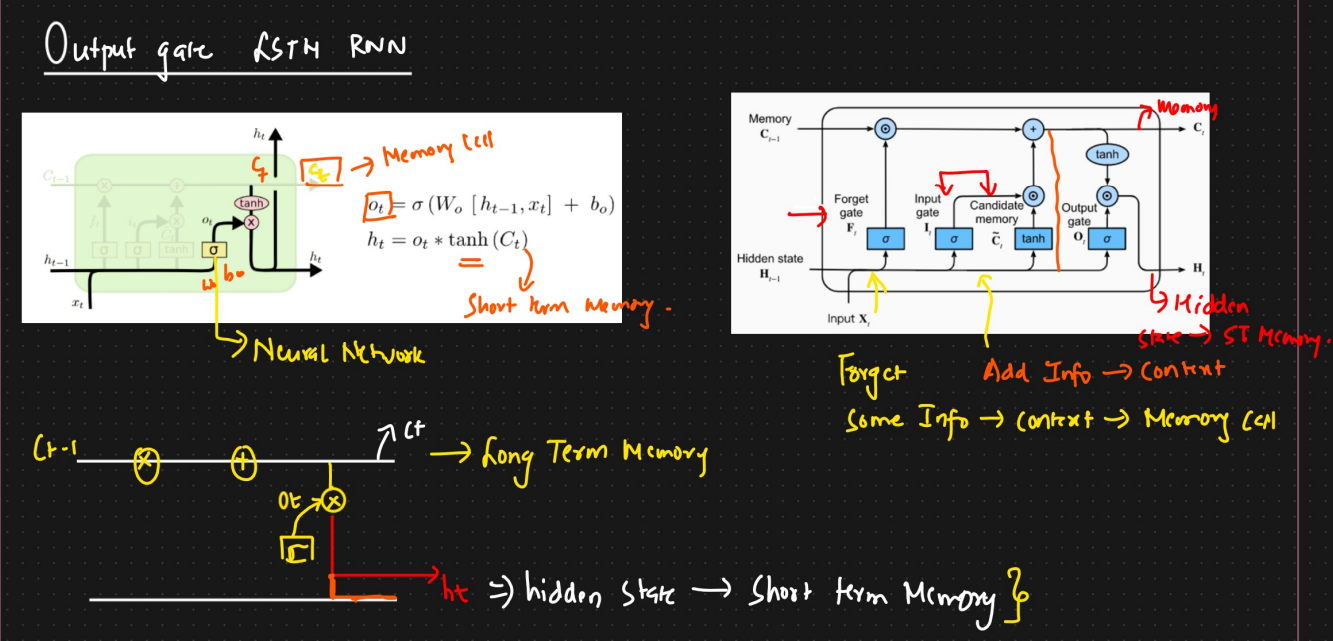 Output gate LSTM RNN
h_t
C_t
C_t → Memory Cell
C_{t-1}
tanh
o_t = σ (W_o [h_{t-1}, x_t] + b_o)
f_t
i_t
o_t
×
σ σ tanh σ
h_t = o_t * tanh (C_t)
h_{t-1}
h_t
w_o b_o
x_t
Short term Memory.
→ Neural Network
Memory
Memory
C_{t-1}
C_t
+
tanh
Forget gate
F_t
Input gate
I_t
Candidate memory
C̃_t
Output gate
O_t
σ σ tanh σ
Hidden state
H_{t-1}
H_t
Input X_t
Hidden
State → ST Memory.
Forget
Add Info → Context
Some Info → Context → Memory Cell
C_{t-1} × + C_t → Long Term Memory
O_t ×
σ
h_t ⇒ hidden state → Short term Memory }